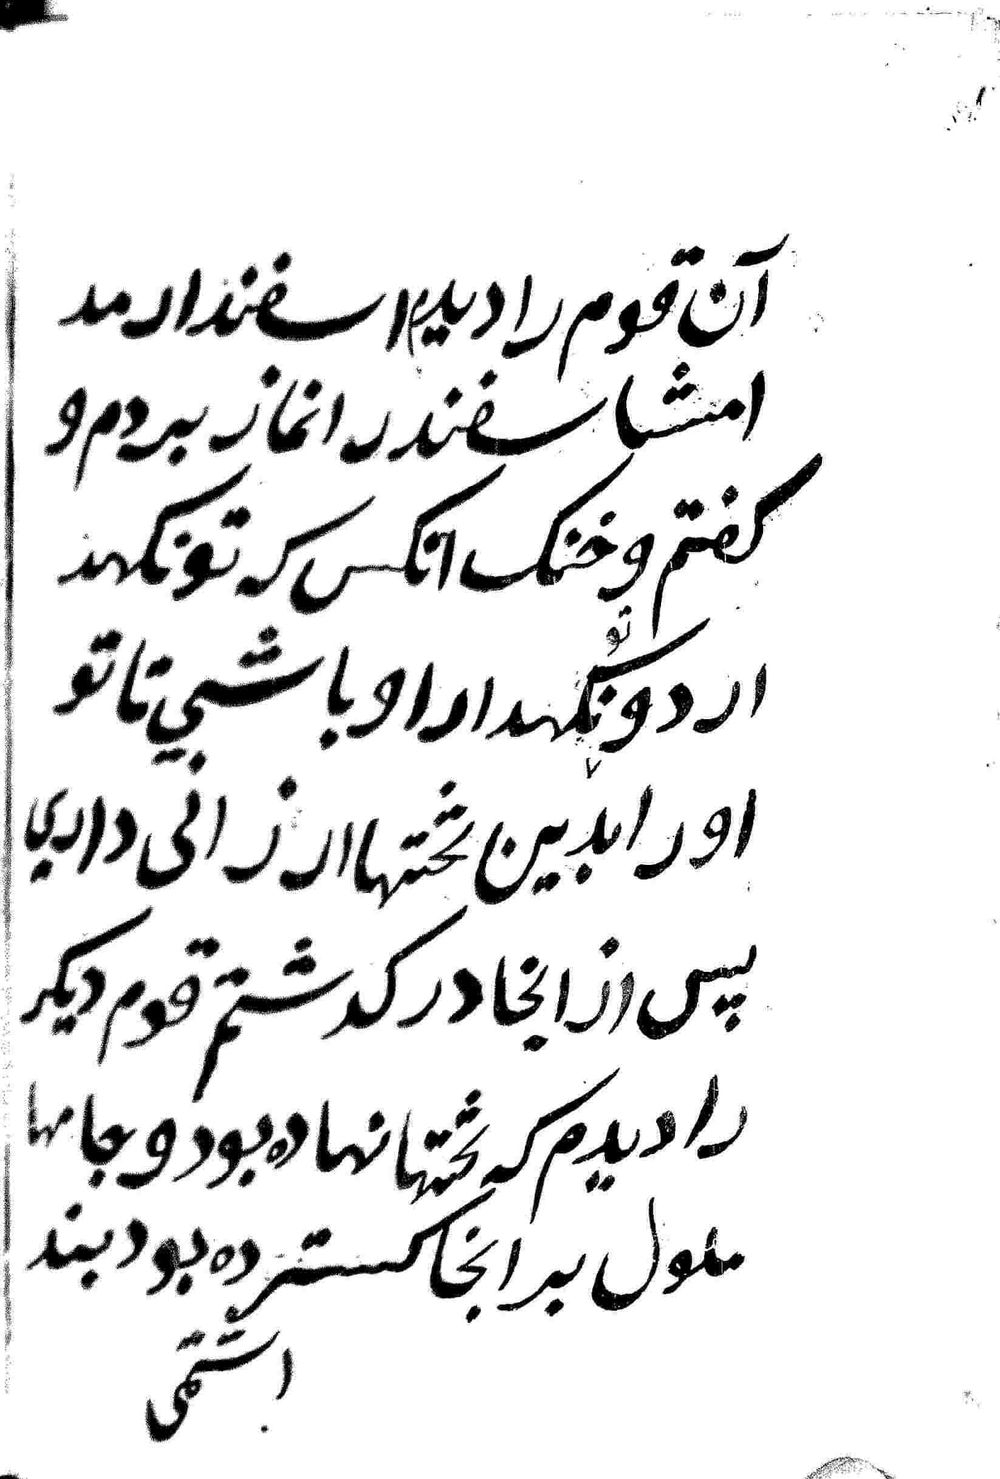 آن قوم را دیدم اسفندار مد
امشا سفندر انماز بردم و
کفتم و خنک انکس که تو نکهد
تو
ار دو نکهدار او باشي تا تو
اورا بدین تختها ار زانی داري
پس از انجا در کد شتم قوم دیکر
را دیدم که تختها نهاده بود و جامها
ملول بر انجا کسترده بود بند
اشتمی